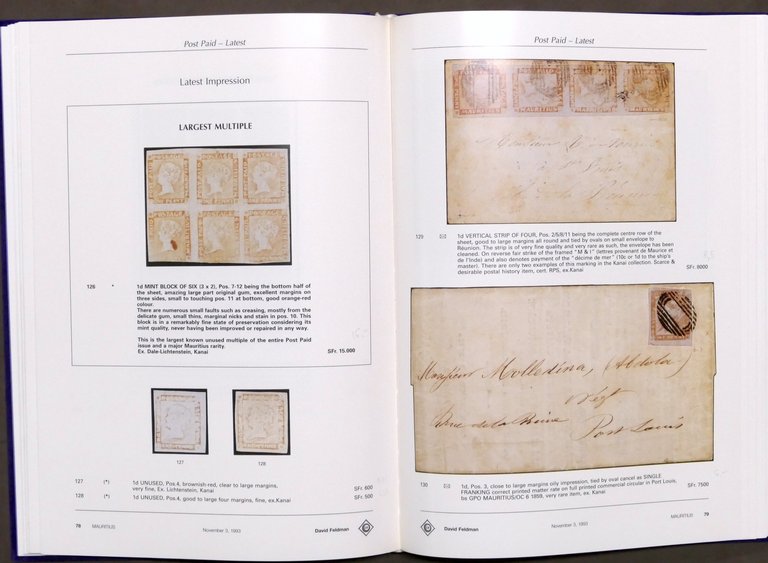 Post Paid – Latest
Latest Impression
LARGEST MULTIPLE
126 * 1d MINT BLOCK OF SIX (3 x 2), Pos. 7-12 being the bottom half of
the sheet, amazing large part original gum, excellent margins on
three sides, small to touching pos. 11 at bottom, good orange-red
colour.
There are numerous small faults such as creasing, mostly from the
delicate gum, small thins, marginal nicks and stain in pos. 10. This
block is in a remarkably fine state of preservation considering its
mint quality, never having been improved or repaired in any way.
This is the largest known unused multiple of the entire Post Paid
issue and a major Mauritius rarity.
Ex. Dale-Lichtenstein, Kanai SFr. 15.000
127
128
127 (*) 1d UNUSED, Pos.4, brownish-red, clear to large margins,
very fine, Ex. Lichtenstein, Kanai SFr. 600
128 (*) 1d UNUSED, Pos.4, good to large four margins, fine, ex.Kanai SFr. 500
78 MAURITIUS
November 3, 1993
David Feldman
Post Paid – Latest
MAURITIUS
129 1d VERTICAL STRIP OF FOUR, Pos. 2/5/8/11 being the complete centre row of the
sheet, good to large margins all round and tied by ovals on small envelope to
Réunion. The strip is of very fine quality and very rare as such, the envelope has been
cleaned. On reverse fair strike of the framed "M & I" (lettres provenant de Maurice et
de l'Inde) and also denotes payment of the "décime de mer" (10c or 1d to the ship's
master). There are only two examples of this marking in the Kanai collection. Scarce &
desirable postal history item, cert. RPS, ex.Kanai SFr. 8000
Monsieur Molledina,
Rue de la Reine
Port Louis
130 1d, Pos. 3, close to large margins oily impression, tied by oval cancel as SINGLE
FRANKING correct printed matter rate on full printed commercial circular in Port Louis,
bs GPO MAURITIUS/OC 6 1859, very rare item, ex. Kanai SFr. 7500
David Feldman
November 3, 1993
MAURITIUS 79